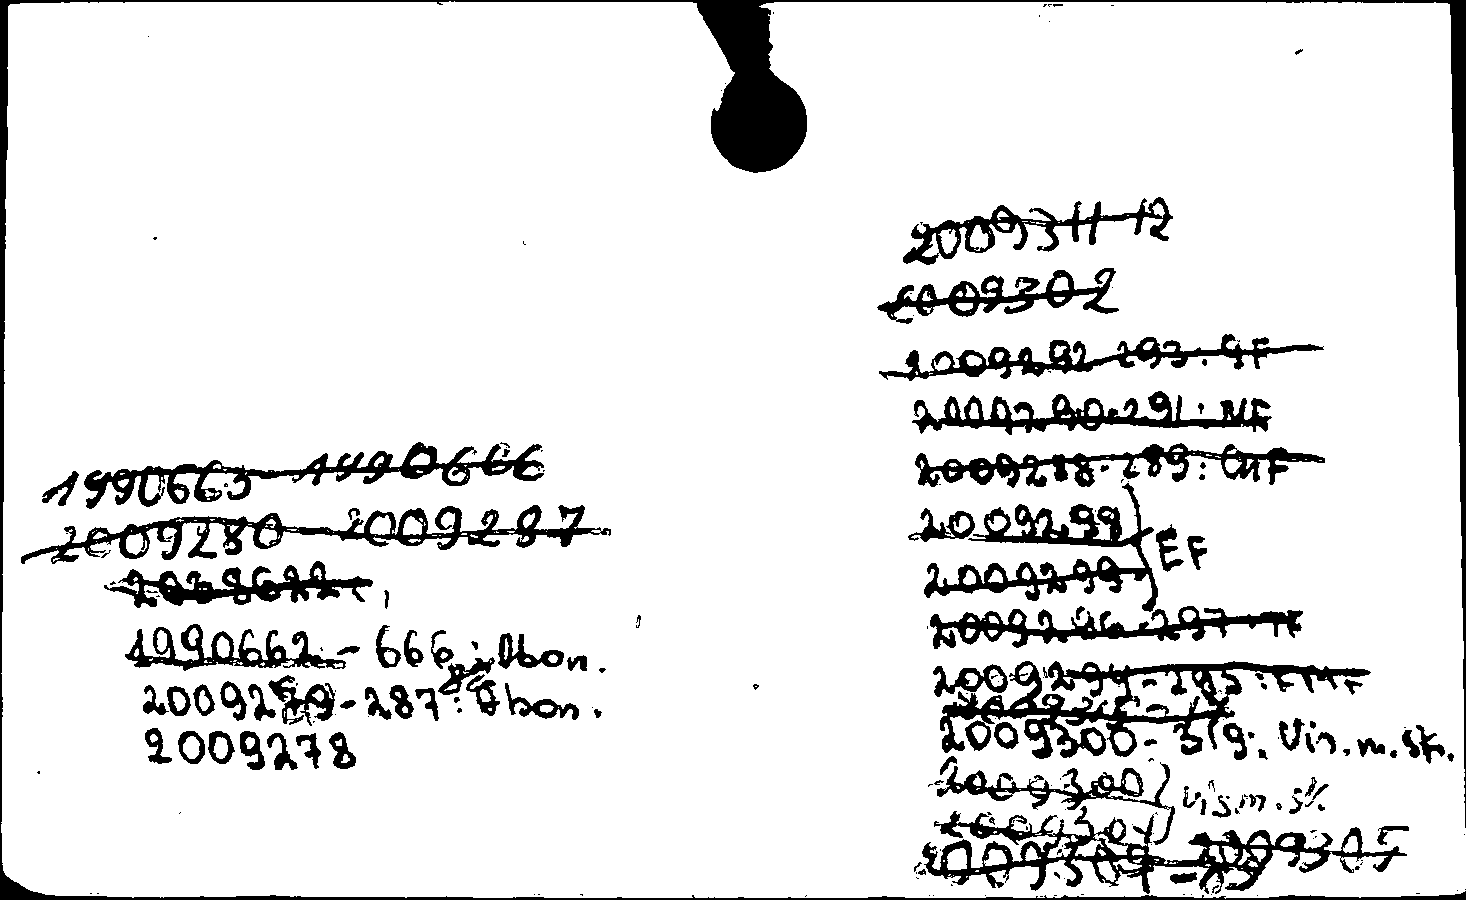 1990663 - 1990666
2009280 - 2009287
2038622
1990662 - 666: Abon.
2009279 - 287: Abon.
2009278
2009311-12
2009302
2009292-293: GF
2009290-291: MF
2009288-289: CMF
2009298
2009299 } EF
2009296-297: TF
2009294-295: FMF
2009300 - 319: Vis. m. sk.
2009300 } vis. m. sk.
2009301
2009304 - 2009305